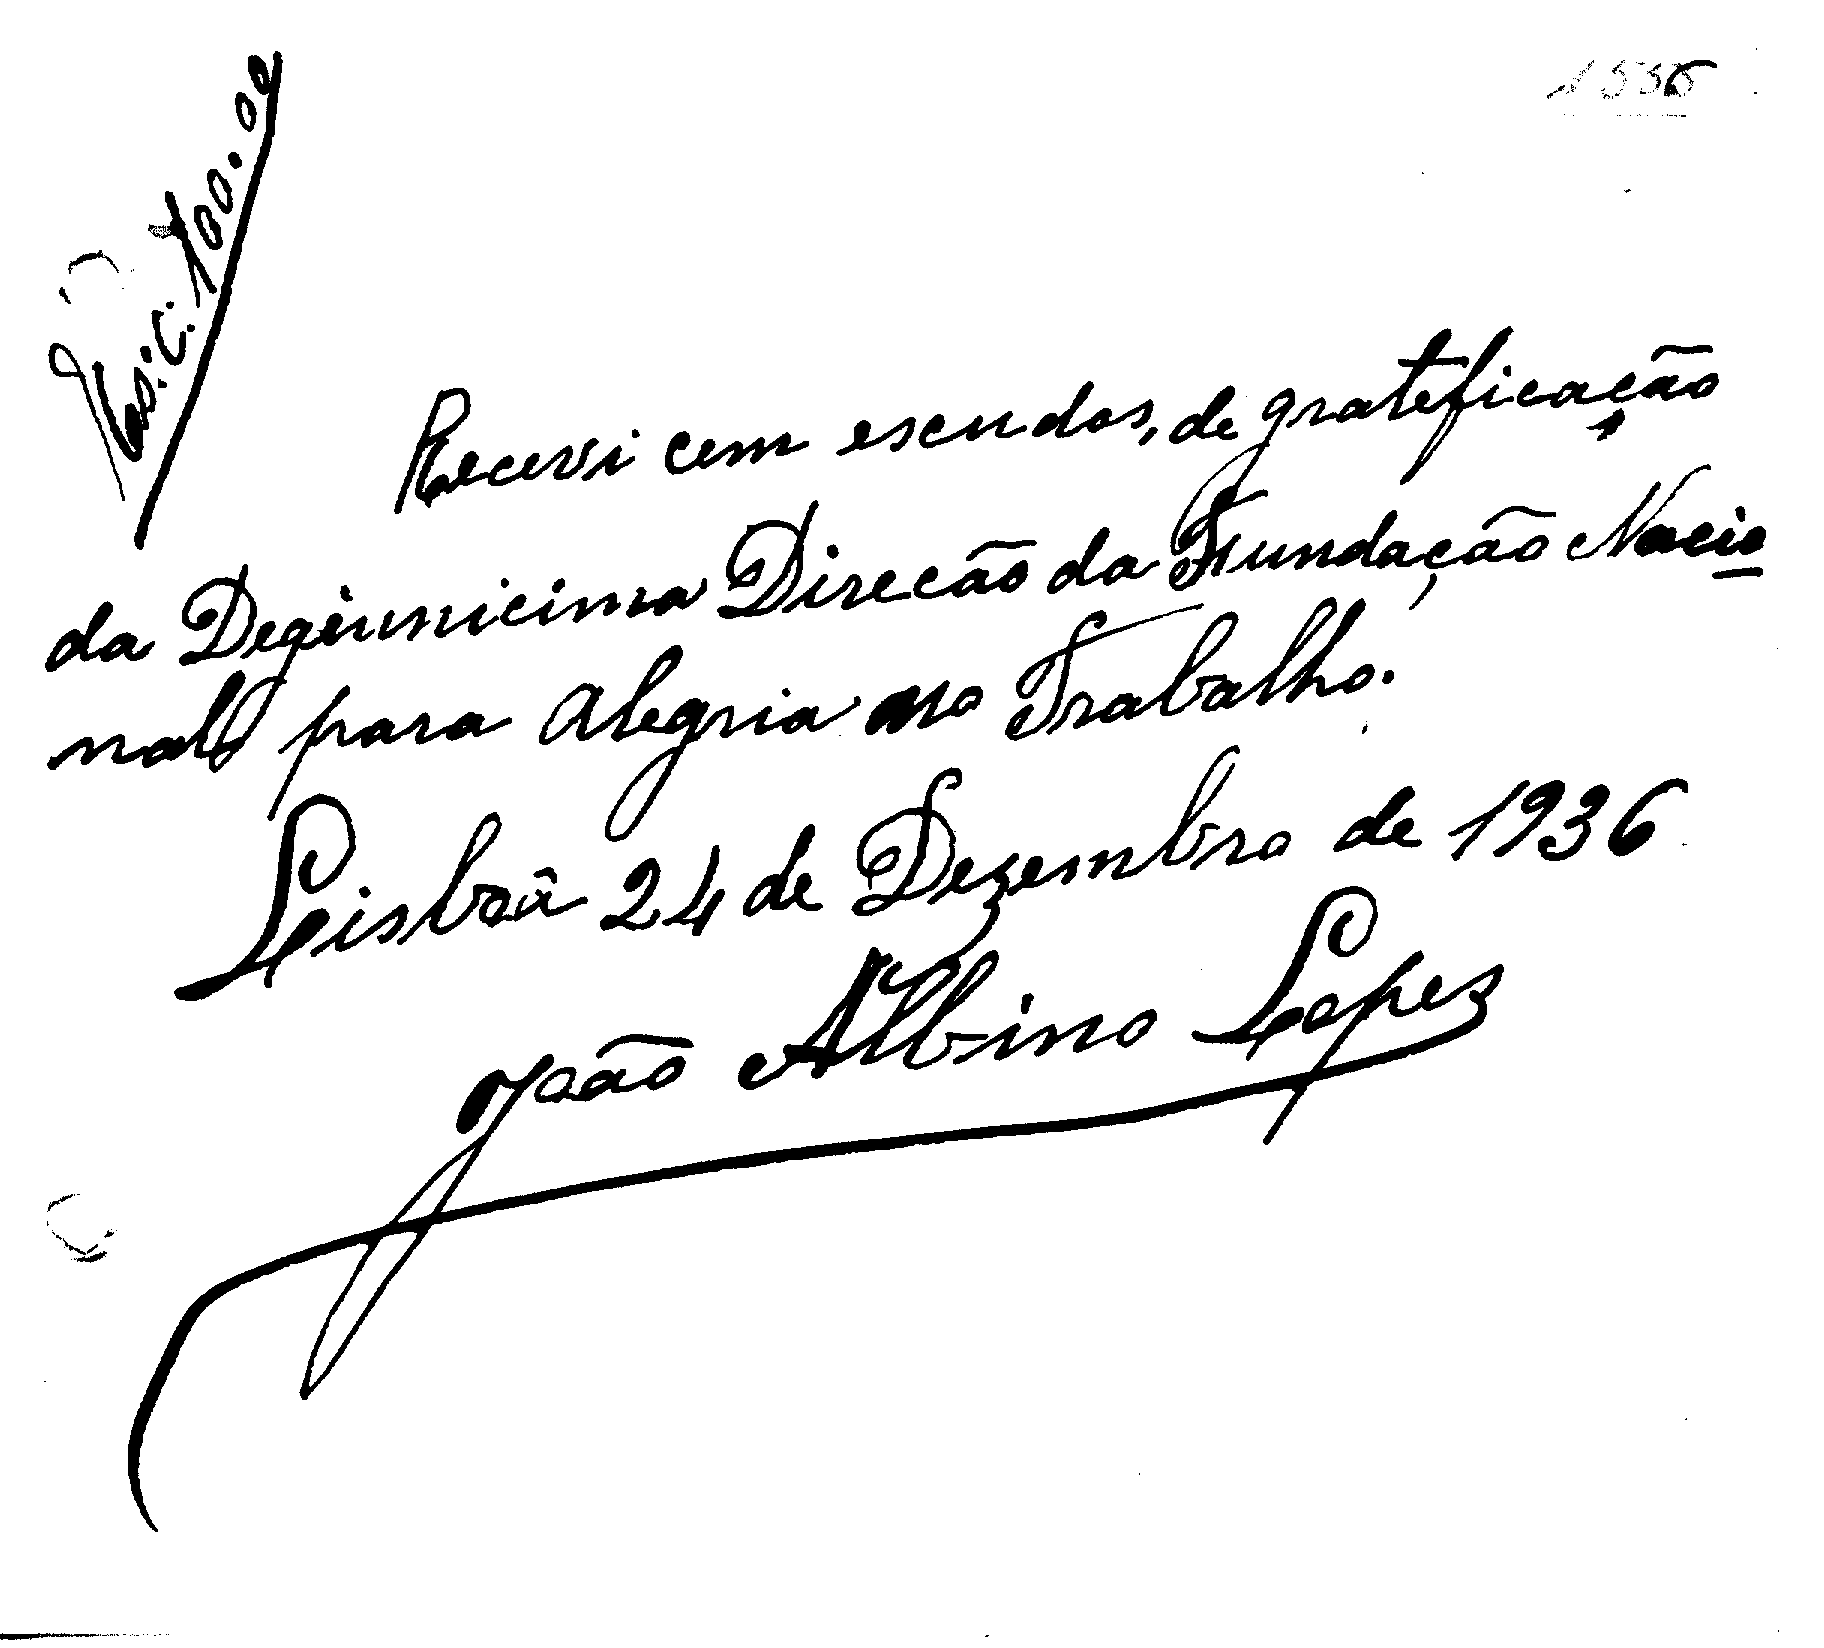 1936
Esc. 100.00
Recevi cem escudos, de grateficação
da Degiunicima Direcão da Fundação Nacio
nal para Alegria no Trabalho.
Lisboâ 24 de Dezembro de 1936
João Albino Lopez